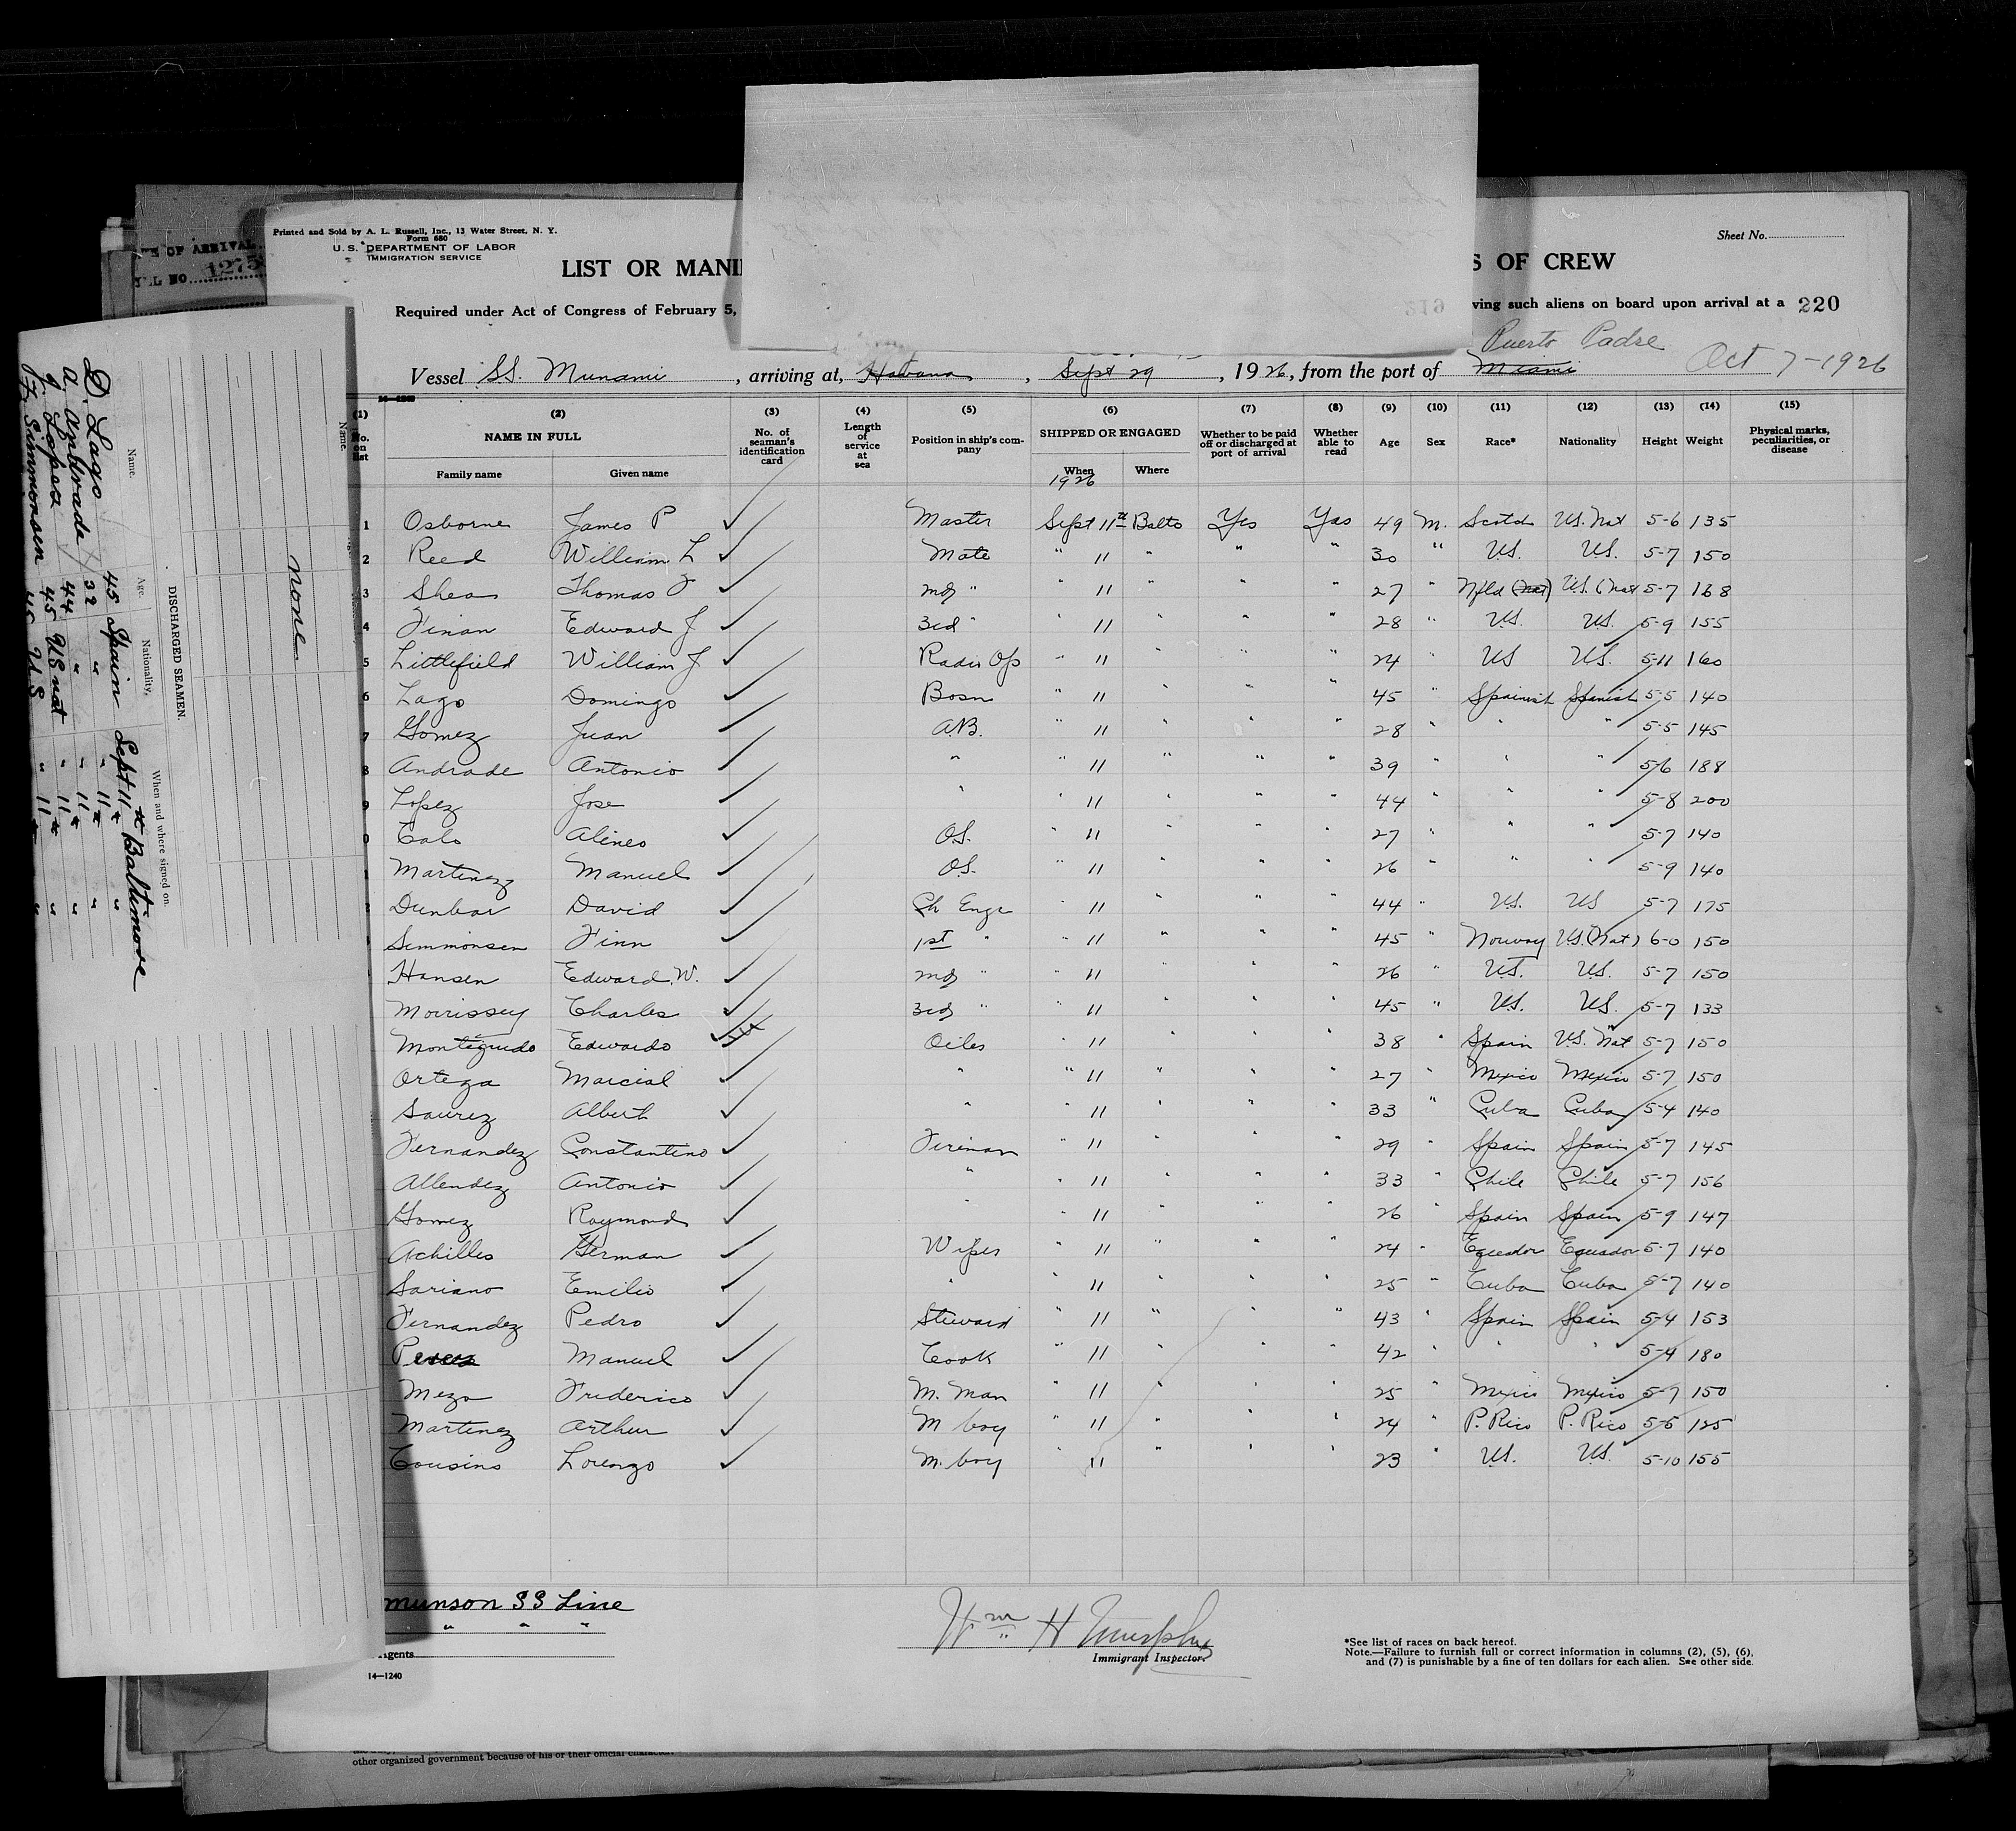 Printed and Sold by A. L. Russell, Inc., 13 Water Street, N. Y.
Form 680
U. S. DEPARTMENT OF LABOR
IMMIGRATION SERVICE
OF ARRIVAL
NO. 1275
Sheet No.
LIST OR MANI
S OF CREW
Required under Act of Congress of February 5,
ving such aliens on board upon arrival at a 220
219
Puerto Padre
Vessel SS. Munami, arriving at, Havana, Sept 29, 1926, from the port of Miami Oct 7-1926
14-1240
(1) (2) (3) (4) (5) (6) (7) (8) (9) (10) (11) (12) (13) (14) (15)
No. on list NAME IN FULL Family name Given name No. of seaman's identification card Length of service at sea Position in ship's company SHIPPED OR ENGAGED When Where Whether to be paid off or discharged at port of arrival Whether able to read Age Sex Race* Nationality Height Weight Physical marks, peculiarities, or disease
1926
1 Osborne James P Master Sept 11th Balto Yes Yes 49 M. Scotch U.S. Nat 5-6 135
2 Reed William L Mate " 11 " " " 30 " U.S. U.S. 5-7 150
3 Shea Thomas F 2nd " " 11 " " " 27 " Nfld (nat) U.S. (nat 5-7 168
4 Finan Edward J 3rd " " 11 " " " 28 " U.S. U.S. 5-9 155
5 Littlefield William J Radio Op " 11 " " " 24 " US U.S. 5-11 160
6 Lago Domingo Bosn " 11 " " " 45 " Spainish Spanish 5-5 140
7 Gomez Juan A.B. " 11 " " " 28 " " " 5-5 145
8 Andrade Antonio " " 11 " " " 39 " " " 5-6 188
9 Lopez Jose " " 11 " " " 44 " " " 5-8 200
0 Calo Alines O.S. " 11 " " " 27 " " " 5-7 140
Martinez Manuel O.S. " 11 " " " 26 " " " 5-9 140
Dunbar David Ch Engr " 11 " " " 44 " U.S. US 5-7 175
Simmonsen Finn 1st " " 11 " " " 45 " Norway U.S. (Nat) 6-0 150
Hansen Edward W. 2nd " " 11 " " " 26 " U.S. U.S. 5-7 150
Morrissey Charles 3rd " " 11 " " " 45 " U.S. U.S. 5-7 133
Montegudo Edwardo Oiler " 11 " " " 38 " Spain U.S. Nat 5-7 150
Ortega Marcial " " 11 " " " 27 " Mexico Mexico 5-7 150
Saurez Albert " " 11 " " " 33 " Cuba Cuba 5-4 140
Fernandez Constantino Fireman " 11 " " " 29 " Spain Spain 5-7 145
Allendez Antonio " " 11 " " " 33 " Chile Chile 5-7 156
Gomez Raymond " " 11 " " " 26 " Spain Spain 5-9 147
Achilles German Wiper " 11 " " " 24 " Equador Equador 5-7 140
Sariano Emilio " " 11 " " " 25 " Cuba Cuba 5-7 140
Fernandez Pedro Steward " 11 " " " 43 " Spain Spain 5-4 153
Manuel Cook " 11 " " " 42 " " " 5-4 180
Meza Friderico M. Man " 11 " " " 25 " Mexico Mexico 5-7 150
Martinez Arthur M boy " 11 " " " 24 " P. Rico P. Rico 5-5 125
Cousins Lorenzo M. boy " 11 " " " 23 " U.S. U.S. 5-10 155
munson SS Line
" " "
Agents
14-1240
Wm H Murphy
Immigrant Inspector.
*See list of races on back hereof.
Note.—Failure to furnish full or correct information in columns (2), (5), (6),
and (7) is punishable by a fine of ten dollars for each alien. See other side.
other organized government because of his or their official character.
Name.
none
DISCHARGED SEAMEN.
Name. Age. Nationality. When and where signed on.
D. Lago 45 Spain Sept 11th Baltimore
A. Andrade 32 " " 11th "
J. Lopez 44 " " 11th "
F. Simmonsen 45 US nat " 11th "
U S " 11th "